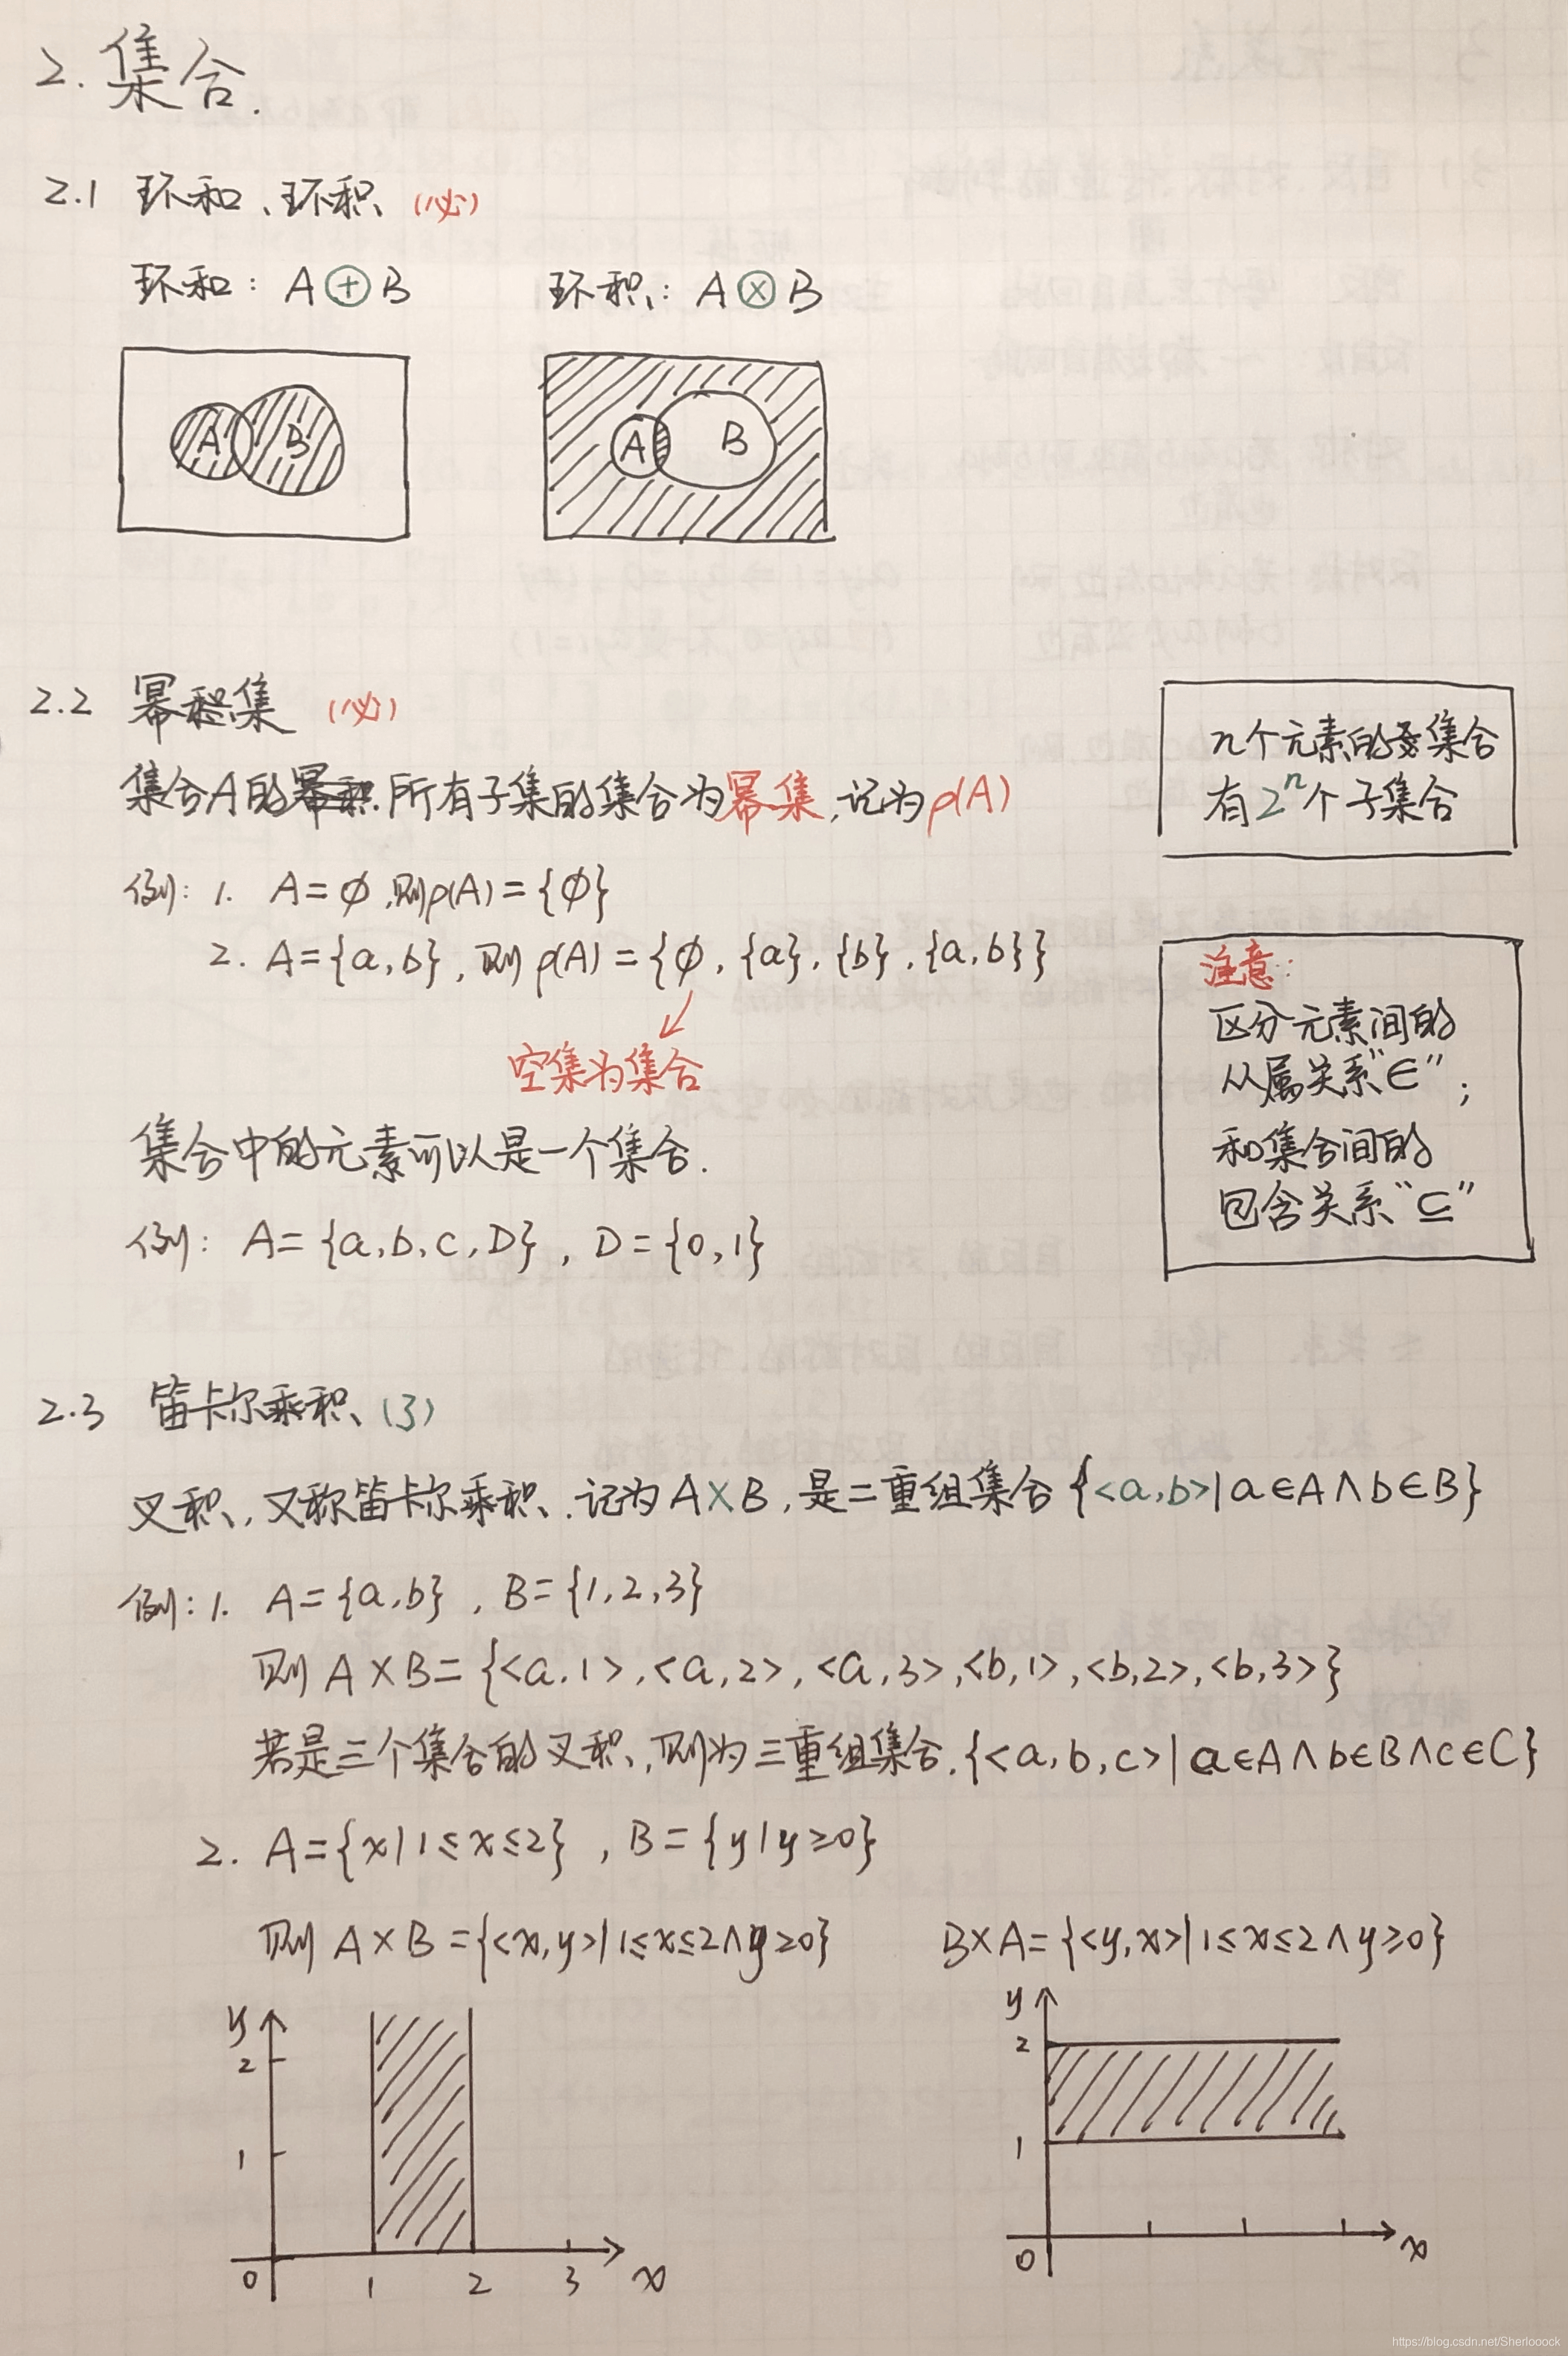 2. 集合.
2.1 环和、环积 (必)
环和: A⊕B 环积: A⊗B
A B
A B
2.2 幂集 (必)
集合A的所有子集的集合为幂集,记为ρ(A)
n个元素的集合
有2ⁿ个子集合
例: 1. A=∅,则ρ(A)={∅}
2. A={a,b},则ρ(A)={∅,{a},{b},{a,b}}
空集为集合
注意:
区分元素间的
从属关系"∈";
和集合间的
包含关系"⊆"
集合中的元素可以是一个集合.
例: A={a,b,c,D}, D={0,1}
2.3 笛卡尔乘积 (3)
叉积,又称笛卡尔乘积.记为A×B,是二重组集合{<a,b>|a∈A∧b∈B}
例: 1. A={a,b}, B={1,2,3}
则 A×B={<a,1>,<a,2>,<a,3>,<b,1>,<b,2>,<b,3>}
若是三个集合的叉积,则为三重组集合.{<a,b,c>|a∈A∧b∈B∧c∈C}
2. A={x|1≤x≤2}, B={y|y≥0}
则 A×B={<x,y>|1≤x≤2∧y≥0} B×A={<y,x>|1≤x≤2∧y≥0}
y
2
1
0 1 2 3 x
y
2
1
0 x
https://blog.csdn.net/Sherlooock